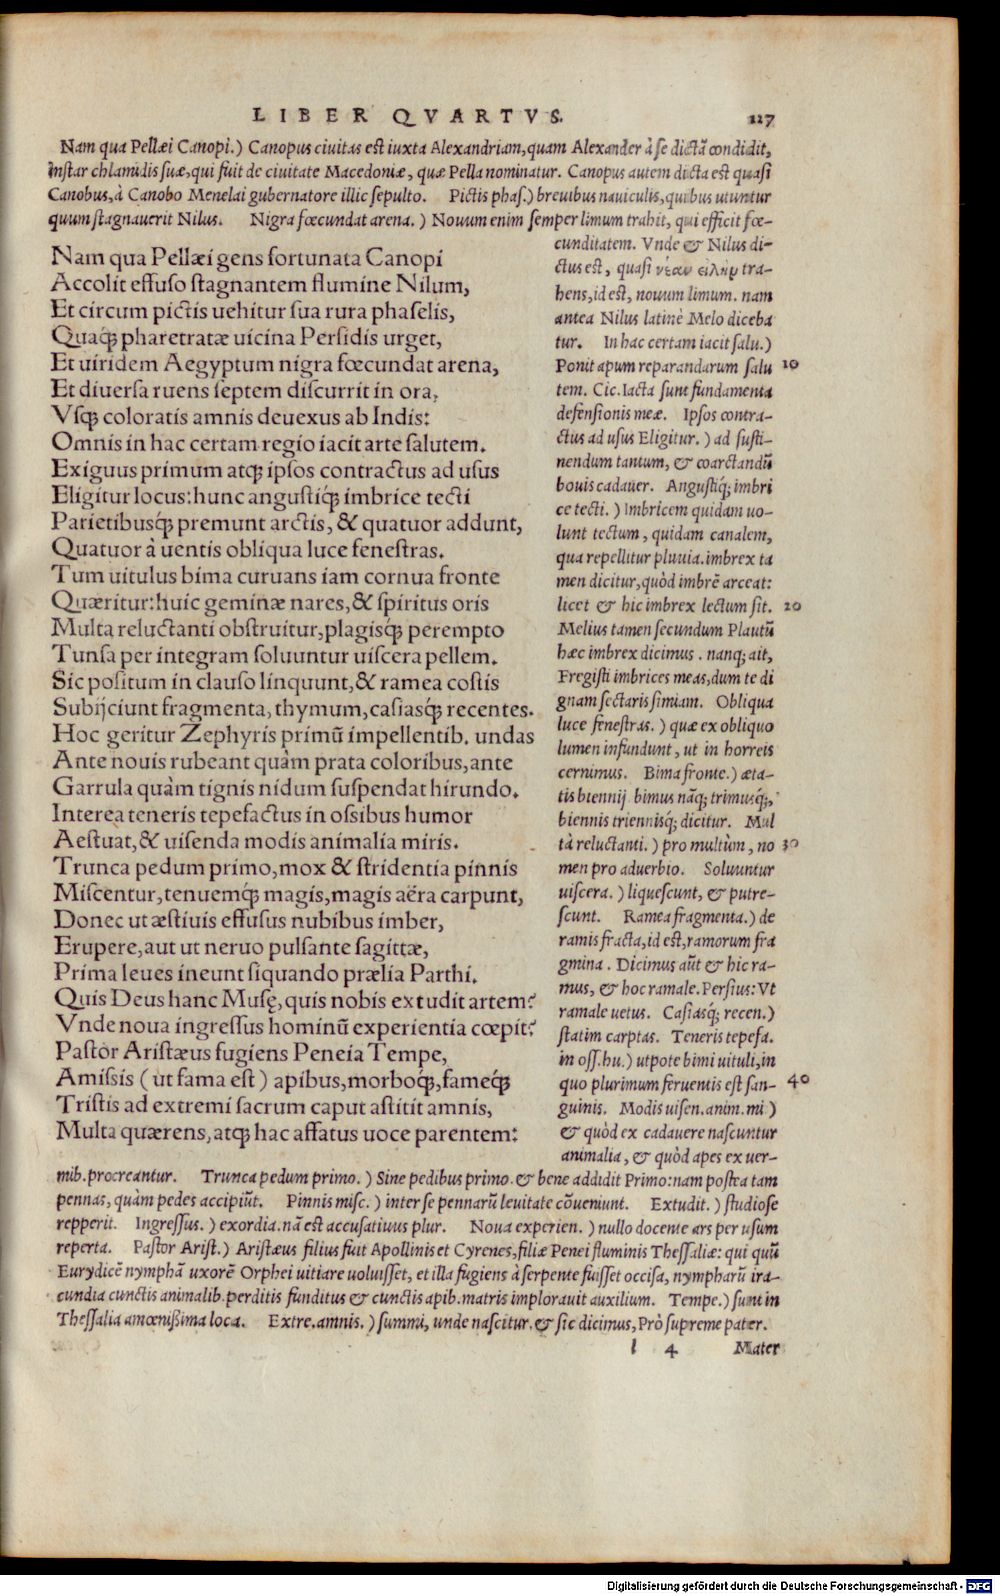 LIBER QVARTVS. 127
Nam qua Pellæi Canopi.) Canopus ciuitas est iuxta Alexandriam, quam Alexander à se dictã condidit,
instar chlamidis suæ, qui fuit de ciuitate Macedoniæ, quæ Pella nominatur. Canopus autem dicta est quasi
Canobus, à Canobo Menelai gubernatore illic sepulto. Pictis phas.) breuibus nauiculis, quibus utuntur
quum stagnauerit Nilus. Nigra fœcundat arena.) Nouum enim semper limum trahit, qui efficit fœ-
Nam qua Pellæi gens fortunata Canopi
Accolit effuso stagnantem flumine Nilum,
Et circum pictis uehitur sua rura phaselis,
Quaq; pharetratæ uicina Persidis urget,
Et uiridem Aegyptum nigra fœcundat arena,
Et diuersa ruens septem discurrit in ora,
Vsq; coloratis amnis deuexus ab Indis:
Omnis in hac certam regio iacit arte salutem.
Exiguus primum atq; ipsos contractus ad usus
Eligitur locus: hunc angustiq́; imbrice tecti
Parietibusq́; premunt arctis, & quatuor addunt,
Quatuor à uentis obliqua luce fenestras.
Tum uitulus bima curuans iam cornua fronte
Quæritur: huic geminæ nares, & spiritus oris
Multa reluctanti obstruitur, plagisq́; perempto
Tunsa per integram soluuntur uiscera pellem.
Sic positum in clauso linquunt, & ramea costis
Subijciunt fragmenta, thymum, casiasq́; recentes.
Hoc geritur Zephyris primũ impellentib. undas
Ante nouis rubeant quàm prata coloribus, ante
Garrula quàm tignis nidum suspendat hirundo.
Interea teneris tepefactus in ossibus humor
Aestuat, & uisenda modis animalia miris.
Trunca pedum primo, mox & stridentia pinnis
Miscentur, tenuemq́; magis, magis aëra carpunt,
Donec ut æstiuis effusus nubibus imber,
Erupere, aut ut neruo pulsante sagittæ,
Prima leues ineunt siquando prælia Parthi.
Quis Deus hanc Musę, quis nobis extudit artem?
Vnde noua ingressus hominũ experientia cœpit?
Pastor Aristæus fugiens Peneia Tempe,
Amissis (ut fama est) apibus, morboq́;, fameq́;
Tristis ad extremi sacrum caput astitit amnis,
Multa quærens, atq; hac affatus uoce parentem:
cunditatem. Vnde & Nilus di-
ctus est, quasi νέαν εἰλὴν tra-
hens, id est, nouum limum. nam
antea Nilus latinè Melo diceba
tur. In hac certam iacit salu.)
Ponit apum reparandarum salu 10
tem. Cic. Iacta sunt fundamenta
defensionis meæ. Ipsos contra-
ctus ad usus Eligitur.) ad susti-
nendum tantum, & coarctandũ
bouis cadauer. Angustiq́; imbri
ce tecti.) Imbricem quidam uo-
lunt tectum, quidam canalem,
qua repellitur pluuia. imbrex ta
men dicitur, quòd imbrẽ arceat:
licet & hic imbrex lectum sit. 20
Melius tamen secundum Plautũ
hæc imbrex dicimus. nanq; ait,
Fregisti imbrices meas, dum te di
gnam sectaris simiam. Obliqua
luce fenestras.) quæ ex obliquo
lumen infundunt, ut in horreis
cernimus. Bima fronte.) æta-
tis biennij. bimus nãq; trimusq́;,
biennis triennisq́; dicitur. Mul
ta reluctanti.) pro multùm, no 30
men pro aduerbio. Soluuntur
uiscera.) liquescunt, & putre-
scunt. Ramea fragmenta.) de
ramis fracta, id est, ramorum fra
gmina. Dicimus aũt & hic ra-
mus, & hoc ramale. Persius: Vt
ramale uetus. Casiasq́; recen.)
statim carptas. Teneris tepefa.
in oss. hu.) utpote bimi uituli, in
quo plurimum feruentis est san- 40
guinis. Modis uisen. anim. mi)
& quòd ex cadauere nascuntur
animalia, & quòd apes ex uer-
mib. procreantur. Trunca pedum primo.) Sine pedibus primo. & bene addidit Primo: nam postea tam
pennas, quàm pedes accipiũt. Pinnis misc.) inter se pennarũ leuitate cõueniunt. Extudit.) studiose
repperit. Ingressus.) exordia. nã est accusatiuus plur. Noua experien.) nullo docente ars per usum
reperta. Pastor Arist.) Aristæus filius fuit Apollinis et Cyrenes, filiæ Penei fluminis Thessaliæ: qui quũ
Eurydicẽ nymphã uxorẽ Orphei uitiare uoluisset, et illa fugiens à serpente fuisset occisa, nympharũ ira-
cundia cunctis animalib. perditis funditus & cunctis apib. matris implorauit auxilium. Tempe.) sunt in
Thessalia amœnißima loca. Extre. amnis.) summi, unde nascitur. & sic dicimus, Prò supreme pater.
l 4 Mater
Digitalisierung gefördert durch die Deutsche Forschungsgemeinschaft - DFG